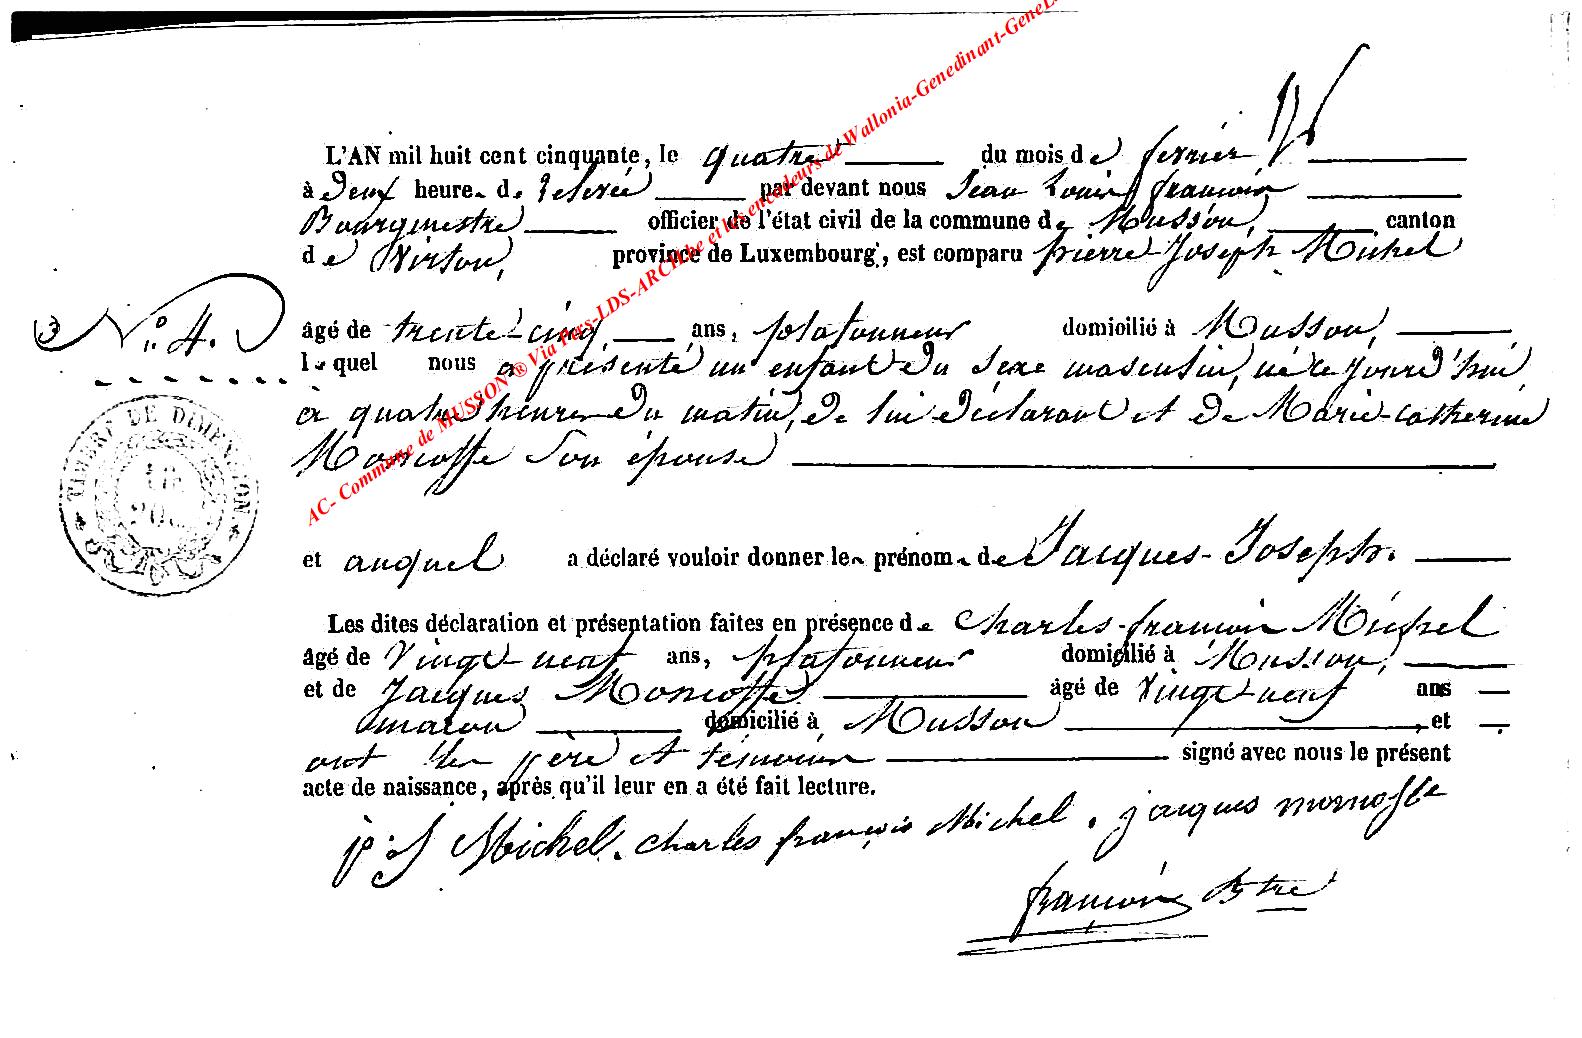 AC- Commune de MUSSON ® Via Pers-LDS-ARCHhe et les encodeurs de Wallonia-Genedinant-GeneL
L'AN mil huit cent cinquante, le quatre du mois de fevrier
à Deux heure- de relevée par devant nous Jean Louis françois
Bourgmestre officier de l'état civil de la commune de Musson, canton
de Virton, province de Luxembourg, est comparu pierre-Joseph Michel
N.º 4.
âgé de trente-cinq ans, plafonneur domicilié à Musson,
lequel nous a présenté un enfant du sexe masculin, né ce jourd'hui
à quatre heures du matin, de lui déclarant et de Marie-catherine
Moncoffe son épouse
TIMBRE DE DIMENSION
et auquel a déclaré vouloir donner les prénoms de Jacques-Joseph.
Les dites déclaration et présentation faites en présence de Charles-françois Michel
âgé de Vingt-neuf ans, plafonneur domicilié à Musson,
et de Jacques Moncoffe âgé de Vingt-neuf ans
macon domicilié à Musson, et
ont les père et témoins signé avec nous le présent
acte de naissance, après qu'il leur en a été fait lecture.
p: J Michel. charles françois Michel. jacques moncoffe
françois Btre